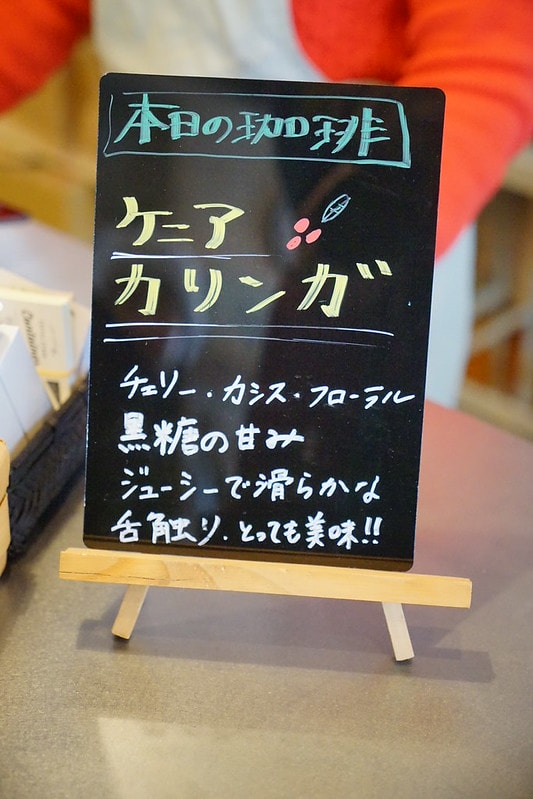 本日の珈琲
ケニア
カリンガ
チェリー・カシス・フローラル
黒糖の甘み
ジューシーで滑らかな
舌触り.とっても美味!!